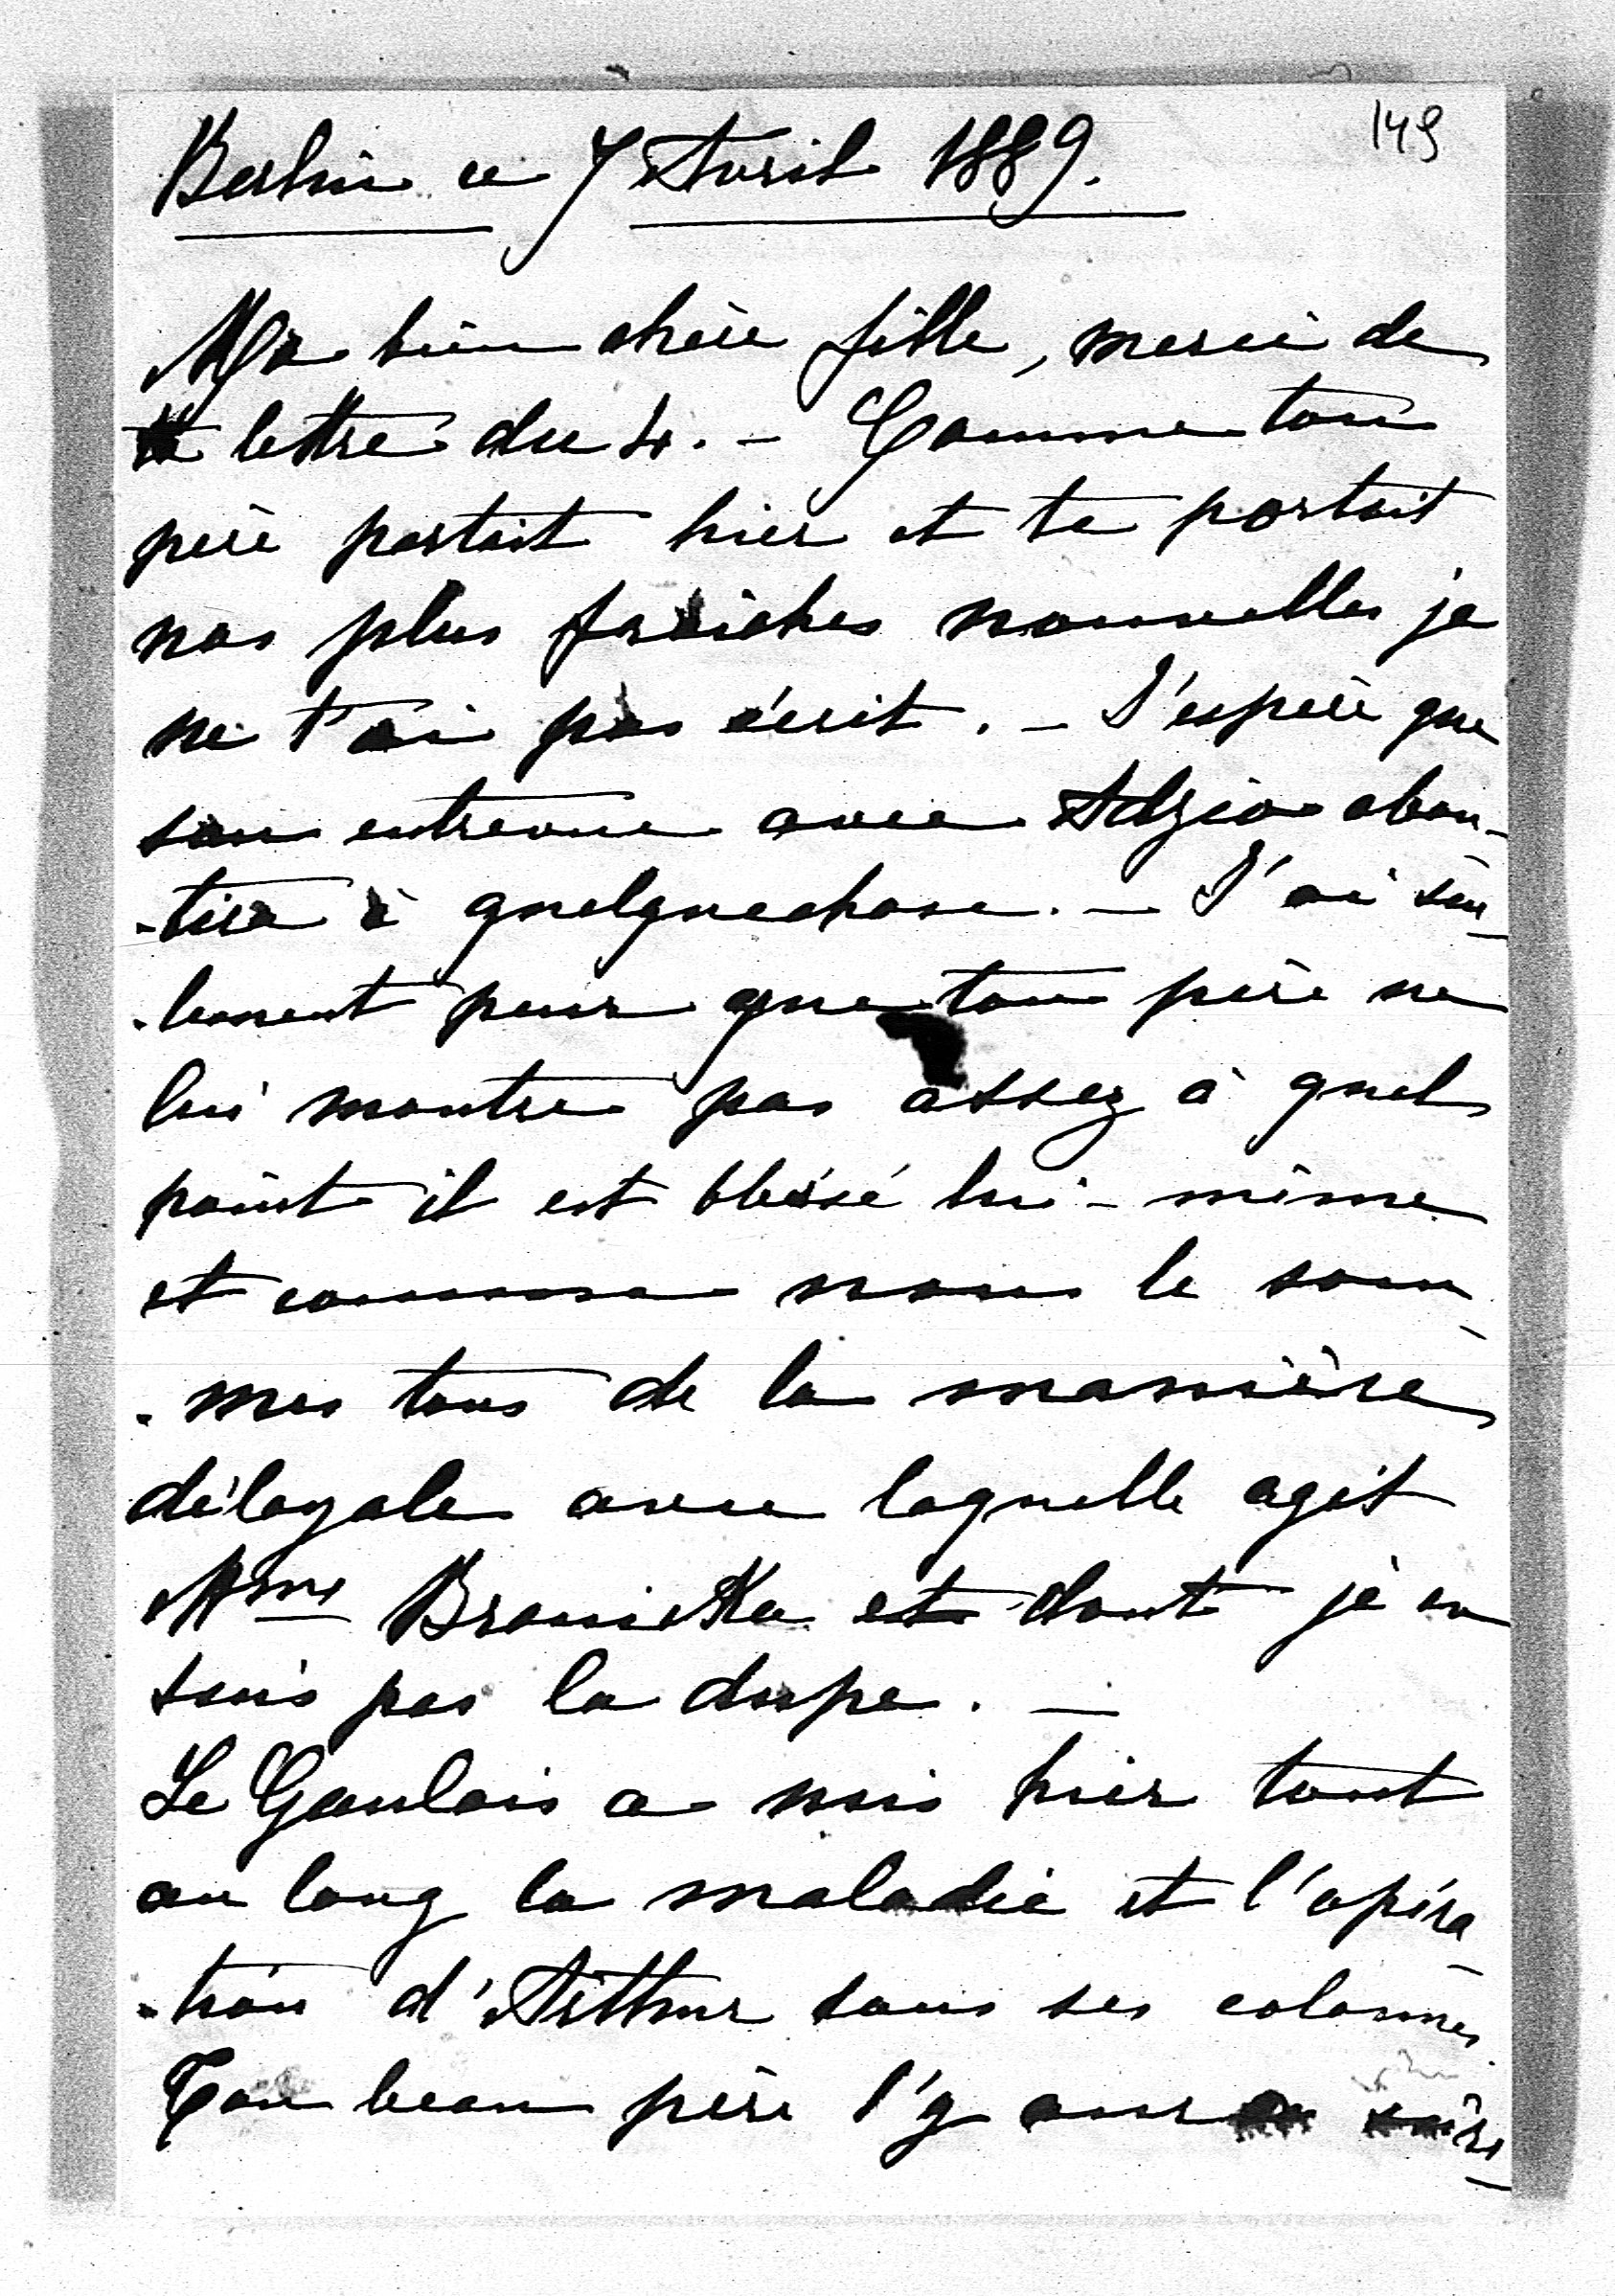 149
Berlin ce 7 Avril 1889.
Ma bien chère fille, merci de
ta lettre du 4. - Comme ton
père partait hier et te portait
nos plus fraiches nouvelles je
ne t'ai pas écrit. - J'espère que
son entrevue avec Adzio abou-
-tira à quelquechose. - J'ai seu-
-lement peur que ton père ne
lui montre pas assez à quel
point il est blessé lui-même
et comme nous le som-
-mes tous de la manière
déloyale avec laquelle agit
Mme Branicka et dont je ne
suis pas la dupe. -
Le Gaulois a mis hier tout
au long la maladie et l'opéra-
-tion d'Arthur dans ses colonnes.
Ton beau père l'y aura